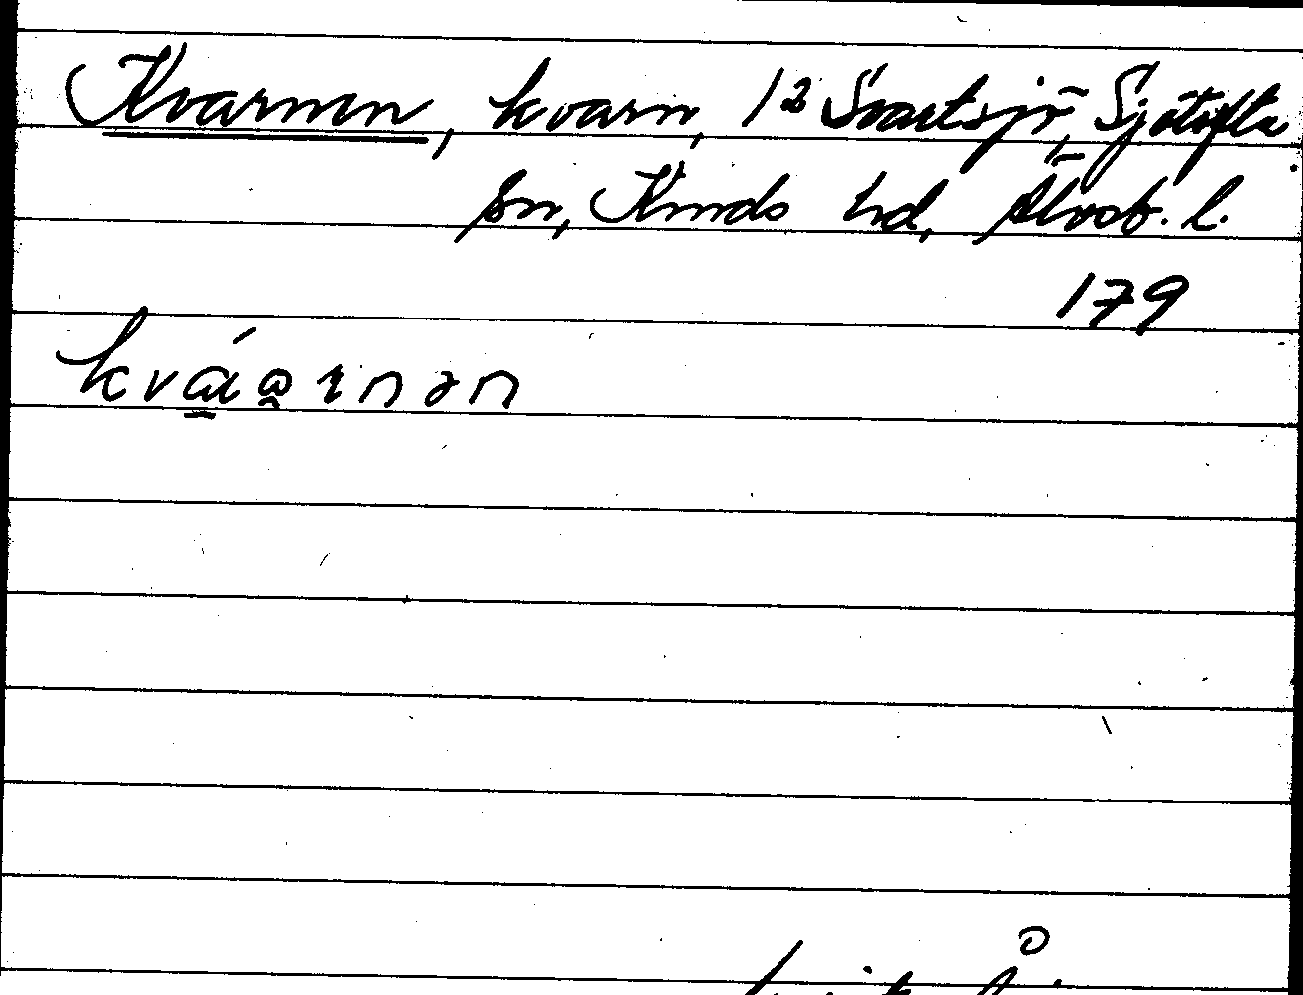 Kvarnen, kvarn, 1² Svartsjö, Sjötofta
sn, Kinds hd, Älvsb. l.
179